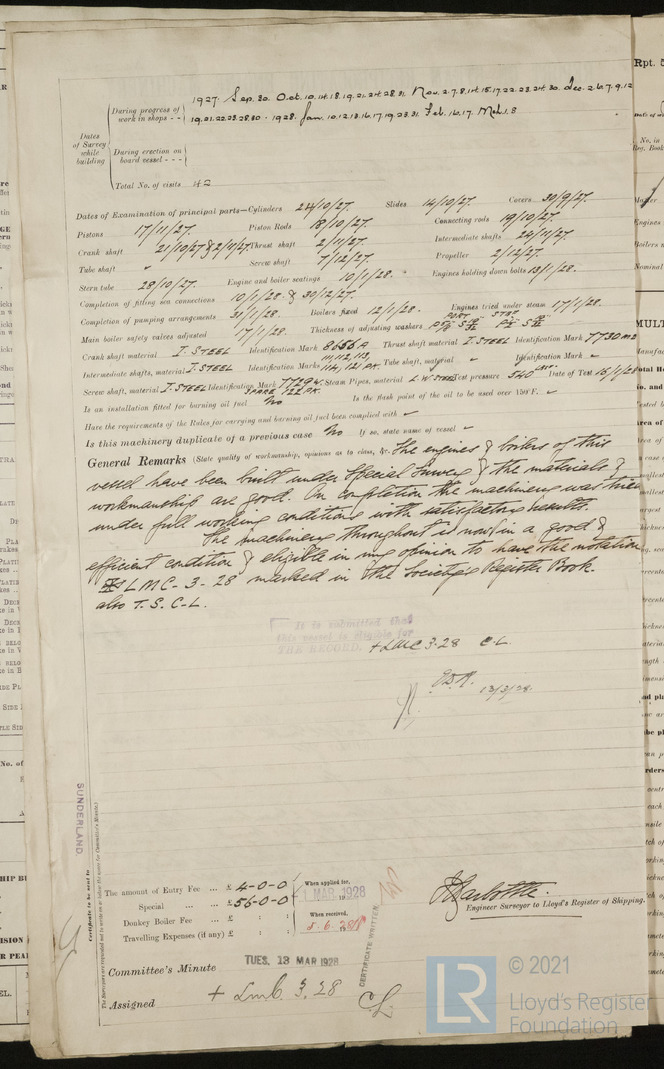 1927. Sep. 30. Oct. 10.14.18.19.21.24.28.31. Nov. 2.7.8.14.15.17.22.23.24.30. Dec. 2.6.7.9.12
During progress of work in shops - -
19.21.22.23.28.30 - 1928. Jan. 10.12.13.16.17.19.23.31. Feb. 16.17. Mch. 1.8
Dates of Survey while building
During erection on board vessel - - -
Total No. of visits 42
Dates of Examination of principal parts—Cylinders 24/10/27. Slides 14/10/27. Covers 30/9/27.
Pistons 17/11/27. Piston Rods 18/10/27. Connecting rods 19/10/27.
Crank shaft 21/10/27 & 2/11/27. Thrust shaft 2/11/27. Intermediate shafts 24/11/27.
Tube shaft " Screw shaft 7/12/27. Propeller 2/12/27.
Stern tube 28/10/27. Engine and boiler seatings 10/1/28. Engines holding down bolts 13/1/28.
Completion of fitting sea connections 10/1/28. & 30/12/27.
Completion of pumping arrangements 31/1/28. Boilers fixed 12/1/28. Engines tried under steam 17/1/28.
Main boiler safety valves adjusted 17/1/28. Thickness of adjusting washers PORT STBD
Crank shaft material I. STEEL Identification Mark 8656A Thrust shaft material I. STEEL Identification Mark 7730
Intermediate shafts, material I. STEEL Identification Marks 111, 112, 113, 114, 121 PK. Tube shaft, material " Identification Mark "
Screw shaft, material I. STEEL Identification Mark 7729 W. SPARE 122 PK. Steam Pipes, material L. W. STEEL Test pressure 540 Date of Test 16/1/28
Is an installation fitted for burning oil fuel No Is the flash point of the oil to be used over 150°F. "
Have the requirements of the Rules for carrying and burning oil fuel been complied with "
Is this machinery duplicate of a previous case No If so, state name of vessel "
General Remarks (State quality of workmanship, opinions as to class, &c. The engines & boilers of this
vessel have been built under Special Survey & the materials &
workmanship are good. On completion the machinery was tried
under full working conditions with satisfactory results.
The machinery throughout is now in a good &
efficient condition & eligible in my opinion to have the notation
LMC - 3 - 28 marked in the Society's Register Book.
also T. S. C - L.
It is submitted that
this vessel is eligible for
THE RECORD. + LMC 3.28 C.L.
13/3/28.
SUNDERLAND.
Certificate to be sent to
The amount of Entry Fee ... £ 4-0-0 When applied for,
Special ... ... £ 56-0-0 1 MAR 1928
Donkey Boiler Fee ... £ : : When received,
Travelling Expenses (if any) £ : : 5.6.28
Engineer Surveyor to Lloyd's Register of Shipping.
CERTIFICATE WRITTEN.
Committee's Minute TUES. 13 MAR 1928
Assigned + LMC 3.28
CL
LR © 2021
Lloyd's Register
Foundation
Rpt. 5
MULT